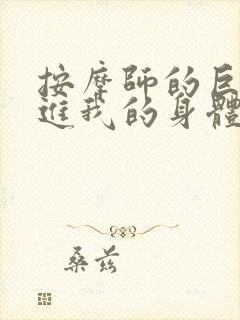 按摩師的巨
進我的身體
桑兹